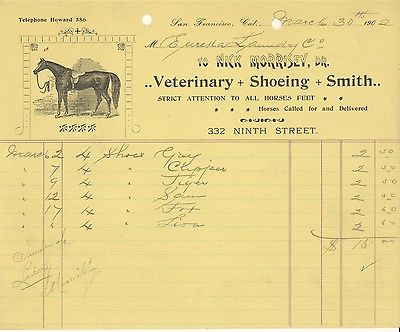 Telephone Howard 586
San Francisco, Cal., March 30th 1902
M Eureka Laundry Co
TO NICK MORRISEY, DR.
..Veterinary + Shoeing + Smith..
STRICT ATTENTION TO ALL HORSES FEET " "
" " Horses Called for and Delivered
332 NINTH STREET.
March 2 4 Shoes Grey 2 50
" 7 4 " Clipper 2 50
" 9 4 " Tiger 2 50
" 12 4 " Sam 2 50
" 17 4 " Fox 2 50
" " 4 " Lion 2 50
$ 15 00